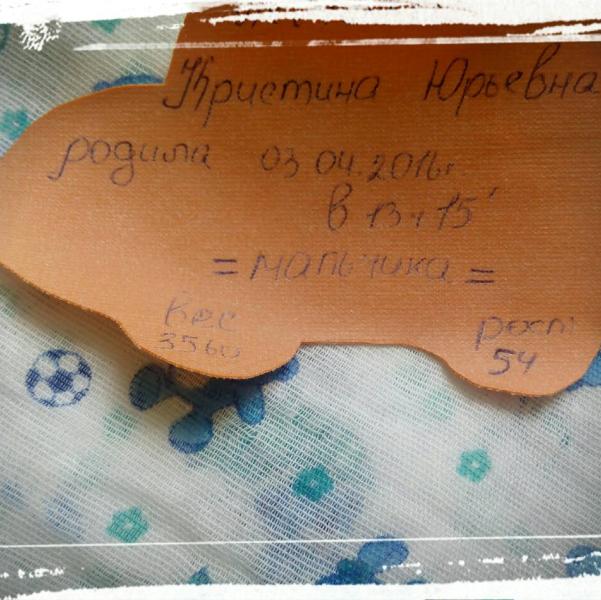 Кристина Юрьевна
родила 03 04.2016г.
в 13ч 15'
= мальчика =
Вес
3560
рост
54